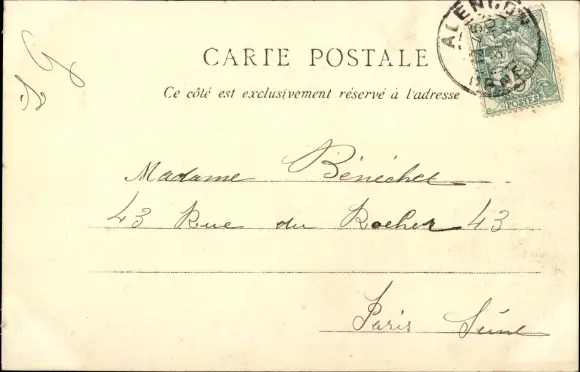 ALENÇON
ORNE
POSTES
CARTE POSTALE
Ce côté est exclusivement réservé à l'adresse
Madame Bénéchet
43 Rue du Rocher 43
Paris Seine